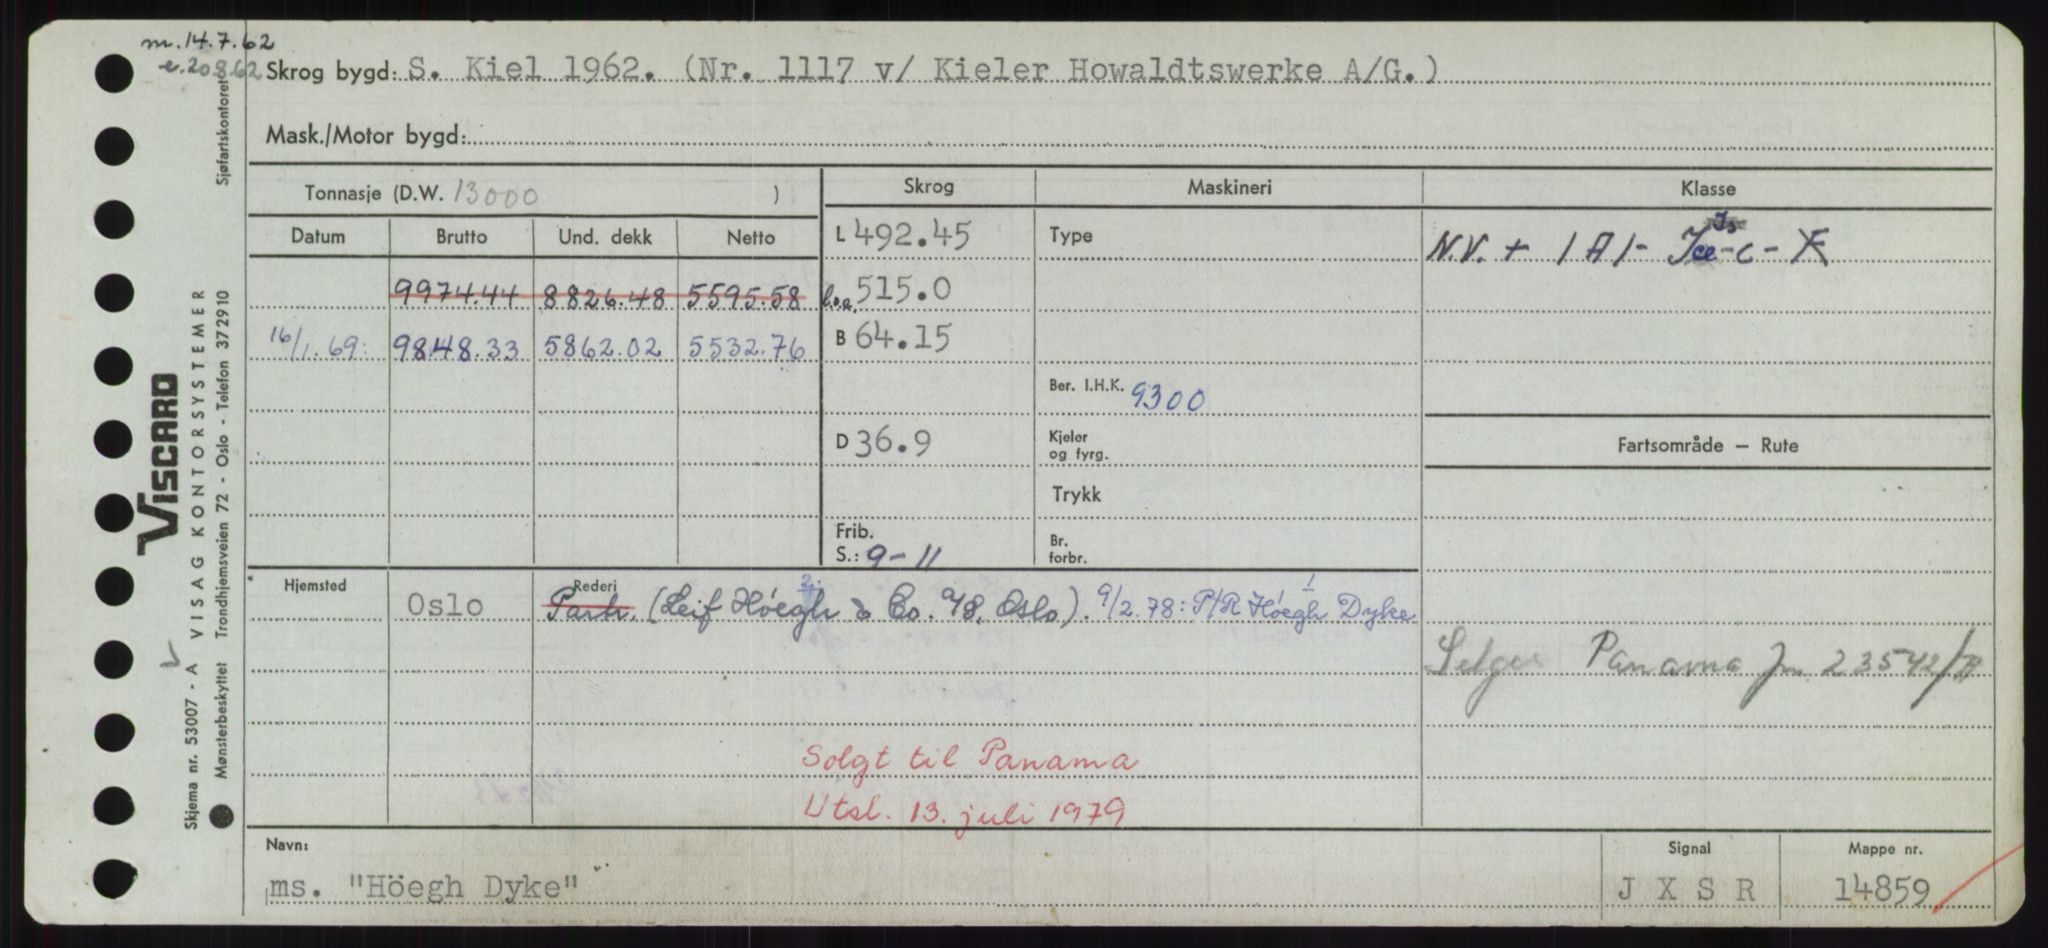 m. 14.7.62
e. 20.8.62
Skrog bygd: S. Kiel 1962. (Nr. 1117 v/ Kieler Howaldtswerke A/G.)
Mask./Motor bygd:
Tonnasje (D.W. 13000 )
Skrog Maskineri Klasse
Datum Brutto Und. dekk Netto
L 492.45 Type
N.V. + 1 A 1 - Ice - C - F
Is
9974.44 8826.48 5595.58
l.o.a. 515.0
16/1.69: 9848.33 5862.02 5532.76
B 64.15
Ber. I.H.K. 9300
D 36.9
Kjeler
og fyrg.
Fartsområde — Rute
Trykk
Frib.
S.: 9-11
Br.
forbr.
Hjemsted Rederi
Oslo Partr. (Leif Höegh & Co. A/S, Oslo). 9/2.78: P/R Höegh Dyke
2. 1
Selges Panama Jnr. 23542/78
Solgt til Panama
Utsl. 13. juli 1979
Navn: Signal Mappe nr.
ms. "Höegh Dyke" J X S R 14859
Skjema nr. 53007 - A VISAG KONTORSYSTEMER Sjøfartskontoret
Mønsterbeskyttet Trondhjemsveien 72 - Oslo - Telefon 372910
VISCARD